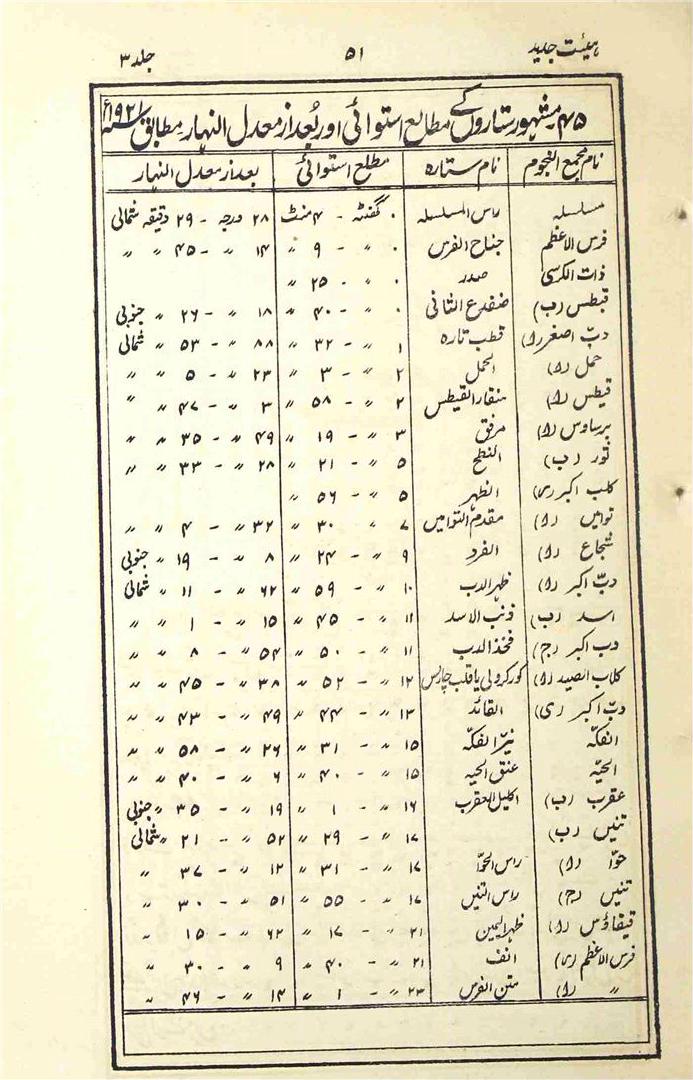 ہیئت جدید ۵۱ جلد ۳
۴۵ مشہور ستاروں کے مطالع استوائی اور بُعد از معدل النہار مطابق ۱۹۲۱ء
نام مجمع النجوم نام ستارہ مطلع استوائی بعد از معدل النہار
مسلسلہ راس المسلسلہ ۰ گھنٹہ - ۴ منٹ ۲۸ درجہ - ۲۹ دقیقہ شمالی
فرس الاعظم جناح الفرس ۰ 〃 - ۹ 〃 ۱۴ 〃 - ۴۵ 〃 〃
ذات الکرسی صدر ۰ 〃 - ۲۵ 〃
قیطس (ب) ضفدع الثانی ۰ 〃 - ۴۰ 〃 ۱۸ 〃 - ۲۶ 〃 جنوبی
دبّ اصغر (ا) قطب تارہ ۱ 〃 - ۳۲ 〃 ۸۸ 〃 - ۵۳ 〃 شمالی
حمل (ا) الحمل ۲ 〃 - ۳ 〃 ۲۳ 〃 - ۵ 〃 〃
قیطس (ا) منقار القیطس ۲ 〃 - ۵۸ 〃 ۳ 〃 - ۴۷ 〃 〃
برساوس (ا) مرفق ۳ 〃 - ۱۹ 〃 ۴۹ 〃 - ۳۵ 〃 〃
ثور (ب) النطح ۵ 〃 - ۲۱ 〃 ۲۸ 〃 - ۳۳ 〃 〃
کلب اکبر (ی) الظہر ۵ 〃 - ۵۶ 〃
توامیں (ا) مقدم التوامیں ۷ 〃 ۳۰ 〃 ۳۲ 〃 - ۴ 〃 〃
شجاع (ا) الفرد ۹ 〃 - ۲۴ 〃 ۸ 〃 - ۱۹ 〃 جنوبی
دبّ اکبر (ا) ظہر الدب ۱۰ 〃 - ۵۹ 〃 ۶۲ 〃 - ۱۱ 〃 شمالی
اسد (ب) ذنب الاسد ۱۱ 〃 - ۴۵ 〃 ۱۵ 〃 - ۱ 〃 〃
دب اکبر (ج) فخذ الدب ۱۱ 〃 - ۵۰ 〃 ۵۴ 〃 - ۸ 〃 〃
کلاب الصید (ا) کور کرولی یا قلب چارلس ۱۲ 〃 - ۵۲ 〃 ۳۸ 〃 - ۴۵ 〃 〃
دبّ اکبر (ی) القائد ۱۳ 〃 - ۴۴ 〃 ۴۹ 〃 - ۴۳ 〃 〃
الفکہ نیّر الفکہ ۱۵ 〃 - ۳۱ 〃 ۲۶ 〃 - ۵۸ 〃 〃
الحیّہ عنق الحیہ ۱۵ 〃 - ۴۰ 〃 ۶ 〃 - ۴۰ 〃 〃
عقرب (ب) اکلیل العقرب ۱۶ 〃 - ۱ 〃 ۱۹ 〃 - ۳۵ 〃 جنوبی
تنیں (ب) ۱۷ 〃 - ۲۹ 〃 ۵۲ 〃 - ۲۱ 〃 شمالی
حوّا (ا) راس الحوّا ۱۷ 〃 - ۳۱ 〃 ۱۲ 〃 - ۳۷ 〃
تنیں (ج) راس التنیں ۱۷ 〃 - ۵۵ 〃 ۵۱ 〃 - ۳۰ 〃
قیقاؤس (ا) ظہر الیمین ۲۱ 〃 - ۱۷ 〃 ۶۲ 〃 - ۱۵ 〃
فرس الاعظم (ی) انف ۲۱ 〃 - ۴۰ 〃 ۹ 〃 - ۳۰ 〃
〃 (ا) متن الفرس ۲۳ 〃 - ۱ 〃 ۱۴ 〃 - ۴۶ 〃